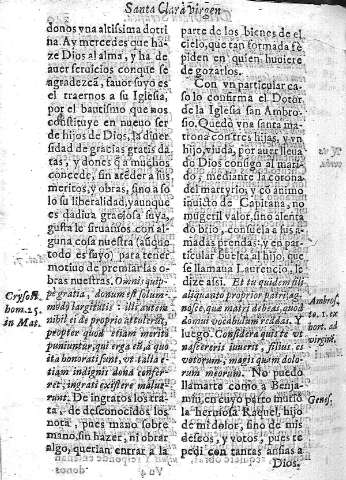 Santa Clara virgen
donos vna altissima dotri
na. Ay mercedes que ha-
ze Dios al alma, y ha de
auer seruicios conque se
agradezcã, fauor suyo es
el traernos a su Iglesia,
por el bautismo que nos
constituye en nueuo ser
de hijos de Dios, la diuer
sidad de gracias gratis da
tas, y dones q̃ a muchos
concede, sin atẽder a sus
meritos, y obras, sino a so
lo su liberalidad, yaunque
es dadiua graciosa suya,
gusta le siruamos con al-
guna cosa nuestra (aũque
todo es suyo) para tener
motiuo de premiar las o-
bras nuestras. Omni quip-
pe gratia, donum est solum-
modò largitatis: illi autem
nihil ei de proprio attulerũt,
propter quod etiam meritò
puniuntur, qui erga eũ, à quo
ita honorati sunt, vt talia e-
tiam indignis dona confer-
ret, ingrati existere malue-
runt. De ingratos los tra-
ta, de desconocidos los
nota, pues mano sobre
mano, sin hazer, ni obrar
algo, querian entrar a la
Crysost.
hom. 25.
in Mat.
parte de los bienes de el
cielo, que tan formada se
piden en quien huuiere
de gozarlos.
Con vn particular ca-
so lo confirma el Dotor
de la Iglesia san Ambro-
sio. Quedò vna santa ma-
trona con tres hijas, y vn
hijo, viuda, por auer lleua
do Dios consigo al mari-
do, mediante la corona
del martyrio, y cõ animo
inuicto de Capitana, no
mugeril valor, sino alenta
do brio, consuela a sus a-
madas prendas: y en par-
ticular buelta al hijo, que
se llamaua Laurencio, le
dize assi. Et tu quidem fili
aliquanto proprior patri, ag-
nosce, qua matri debeas, quod
domni vocabulum tradat. Y
luego. Considera quis te vt
nascereris iuuerit, filius es
votorum, magis quam dolo-
rum meorum. No puedo
llamarte como a Benja-
min, en cuyo parto murio
la hermosa Raquel, hijo
de mi dolor, sino de mis
desseos, y votos, pues te
pedi con tantas ansias a
Dios.
Ambros.
to. 1. ex
hort. ad
virgin.
Genes.